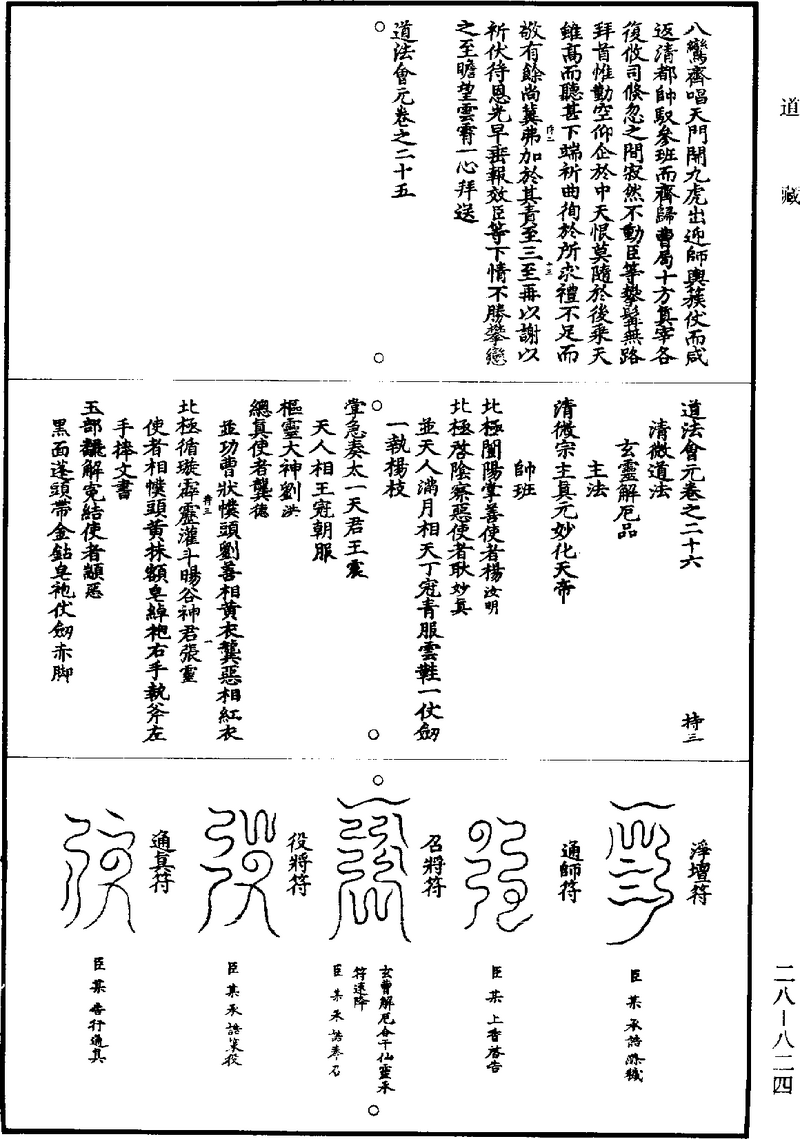 道藏
八鸞齊唱天門開九虎出迎師輿簇仗而咸
返清都帥馭參班而齊歸曹局十方真宰各
復攸司倏忽之間寂然不動臣等攀髯無路
拜首惟勤空仰企於中天恨莫隨於後乘天
雖高而聽甚下端祈曲徇於所求禮不足而
敬有餘尚冀弗加於其責至三至再以謝以
祈伏待恩光早垂報效臣等下情不勝攀戀
之至瞻望雲霄一心拜送
道法會元卷之二十五
道法會元卷之二十六
持三
清微道法
玄靈解厄品
主法
清微宗主真元妙化天帝
帥班
北極闓陽掌善使者楊汝明
北極啓陰察惡使者耿妙真
並天人滿月相天丁冠青服雲鞋一仗劒
一執楊枝
掌急奏太一天君王震
天人相王冠朝服
樞靈大神劉洪
總真使者龔德
並功曹狀幞頭劉善相黃衣龔惡相紅衣
北極循璇霹靂灌斗暘谷神君張靈
使者相幞頭黃抹額皂綽袍右手執斧左
手捧文書
玉部讎解冤結使者顓惡
黑面蓬頭帶金鉆皂袍仗劒赤脚
淨壇符
臣某承誥滌穢
通師符
臣某上香啓告
召將符
玄曹解厄合干仙靈承
符速降
臣某承誥奉召
役將符
臣某承誥策役
通真符
臣某告行通真
二八—八二四